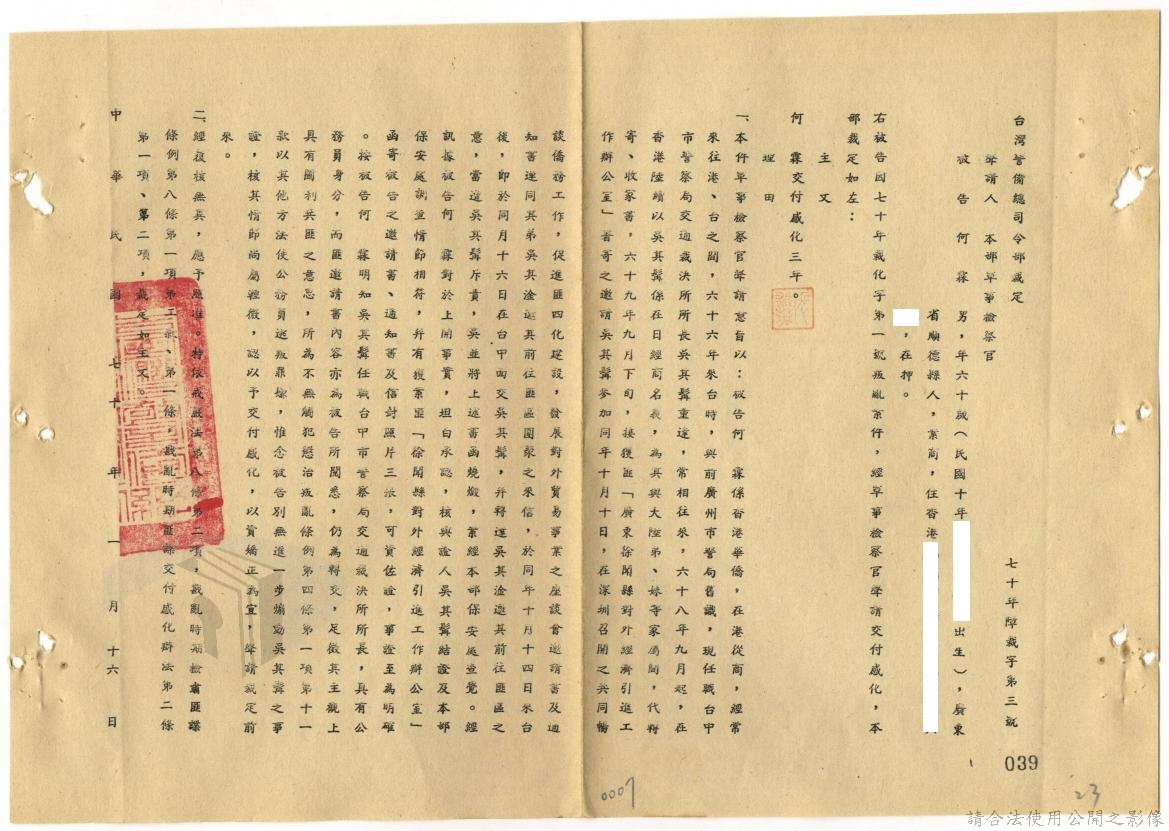 台灣警備總司令部裁定
七十年障裁字第三號
聲請人 本部軍事檢察官
被告 何 霖 男，年六十歲（民國十年
出生），廣東
省順德縣人，業商，住香港
，在押。
右被告因七十年裁化字第一號叛亂案件，經軍事檢察官聲請交付感化，本
部裁定如左：
主文
何 霖交付感化三年。
理由
一、本件軍事檢察官聲請意旨以：被告何 霖係香港華僑，在港從商，經常
來往港、台之間，六十六年來台時，與前廣州市警局舊識，現任職台中
市警察局交通裁決所所長吳其髯重逢，常相往來，六十八年九月起，在
香港陸續以吳其髯係在日經商名義，為其與大陸弟、妹等家屬間，代轉
寄、收家書，六十九年九月下旬，接獲匪「廣東徐聞縣對外經濟引進工
作辦公室」書寄之邀請吳其髯參加同年十月十日，在深圳召開之共同暢
談僑務工作，促進匪四化建設，發展對外貿易事業之座談會邀請書及通
知書連同其弟吳其淦邀其前往匪區團聚之來信，於同年十月十四日來台
後，即於同月十六日在台中面交吳其髯，并轉達吳其淦邀其前往匪區之
意，當遭吳其髯斥責，吳並將上述書函燒燬，案經本部保安處查覺。經
訊據被告何 霖對於上開事實，坦白承認，核與證人吳其髯結證及本部
保安處調查情節相符，并有獲案匪「徐聞縣對外經濟引進工作辦公室」
函寄被告之邀請書、通知書及信封照片三張，可資佐證，事證至為明確
。按被告何 霖明知吳其髯任職台中市警察局交通裁決所所長，具有公
務員身分，而匪邀請書內容亦為被告所閱悉，仍為轉交，足徵其主觀上
具有圖利共匪之意思，所為不無觸犯懲治叛亂條例第四條第一項第十一
款以其他方法使公務員逃叛罪嫌，惟念被告別無進一步煽動吳其髯之事
證，核其情節尚屬輕微，認以予交付感化，以資矯正為宜，聲請裁定前
來。
二、經復核無異，應予照准。特依戒嚴法第八條第二項，戡亂時期檢肅匪諜
條例第八條第一項第二款、第二條，戡亂時期匪諜交付感化辦法第二條
第一項、第二項，裁定如主文。
中華民國七十年一月十六日
039
0007
23
請合法使用公開之影像